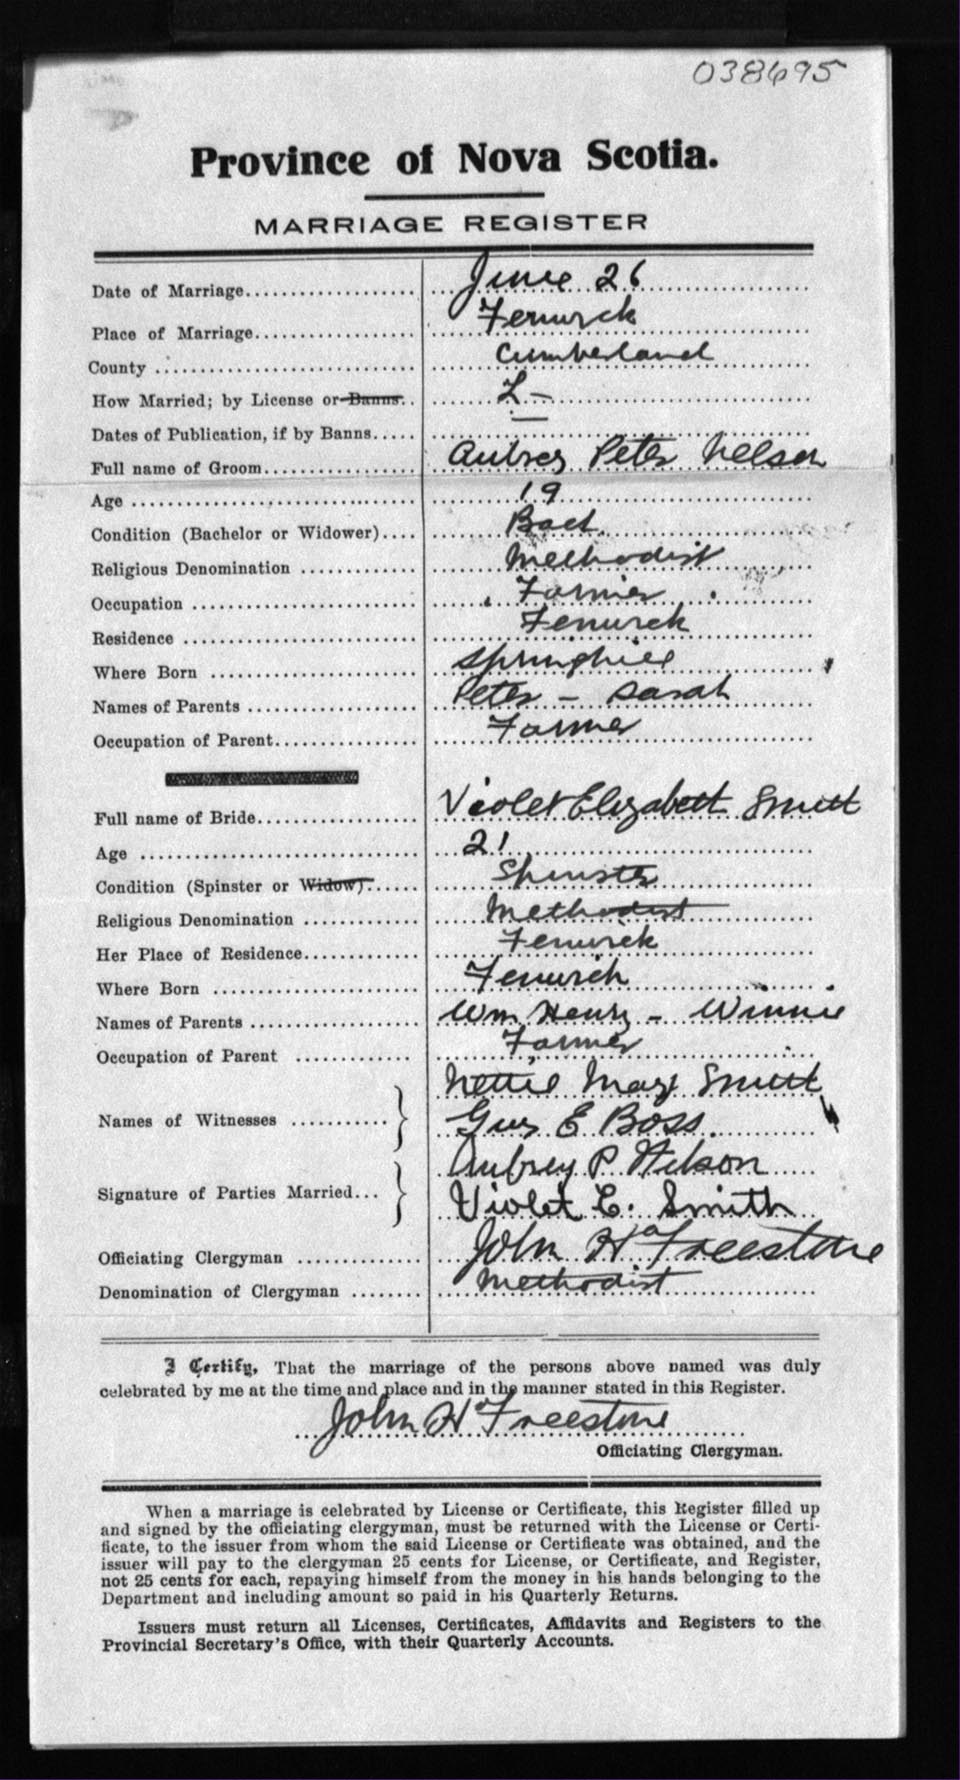 038695
Province of Nova Scotia.
MARRIAGE REGISTER
Date of Marriage.................... June 26
Place of Marriage................... Fenwick
County ............................. Cumberland
How Married; by License or Banns.. L -
Dates of Publication, if by Banns..... —
Full name of Groom................ Aubrey Peter Nelson
Age ............................. 19
Condition (Bachelor or Widower).... Bach
Religious Denomination ............ Methodist
Occupation ......................... Farmer
Residence .......................... Fenwick
Where Born ....................... Springhill
Names of Parents .................. Peter - Sarah
Occupation of Parent................ Farmer
Full name of Bride.................. Violet Elizabeth Smith
Age ............................... 21
Condition (Spinster or Widow)...... Spinster
Religious Denomination ............ Methodist
Her Place of Residence............. Fenwick
Where Born ....................... Fenwick
Names of Parents .................. Wm Henry - Winnie
Occupation of Parent ............. Farmer
Nettie May Smith
Names of Witnesses ........... } Gus E Boss.
Aubrey P. Nelson
Signature of Parties Married... } Violet E. Smith
Officiating Clergyman .............. John H Freestone
Denomination of Clergyman ........ Methodist
I Certify, That the marriage of the persons above named was duly
celebrated by me at the time and place and in the manner stated in this Register.
John H Freestone
Officiating Clergyman.
When a marriage is celebrated by License or Certificate, this Register filled up
and signed by the officiating clergyman, must be returned with the License or Certi-
ficate, to the issuer from whom the said License or Certificate was obtained, and the
issuer will pay to the clergyman 25 cents for License, or Certificate, and Register,
not 25 cents for each, repaying himself from the money in his hands belonging to the
Department and including amount so paid in his Quarterly Returns.
Issuers must return all Licenses, Certificates, Affidavits and Registers to the
Provincial Secretary's Office, with their Quarterly Accounts.